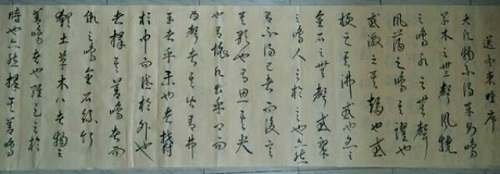 送孟東野序
大凡物不得其平則鳴
草木之無聲風撓
之鳴水之無聲
風蕩之鳴其躍也
或激之其趨也或
梗之其沸也或炙之
金石之無聲或擊
之鳴人之於言也亦然
有不得已者而後言
其歌也有思其哭
也有懷凡出乎口而
為聲者其皆有弗
平者乎樂也者鬱
於中而泄於外也
者擇其善鳴者而
假之鳴金石絲竹
匏土革木八者物之
善鳴者也維天之於
時也亦然擇其善鳴